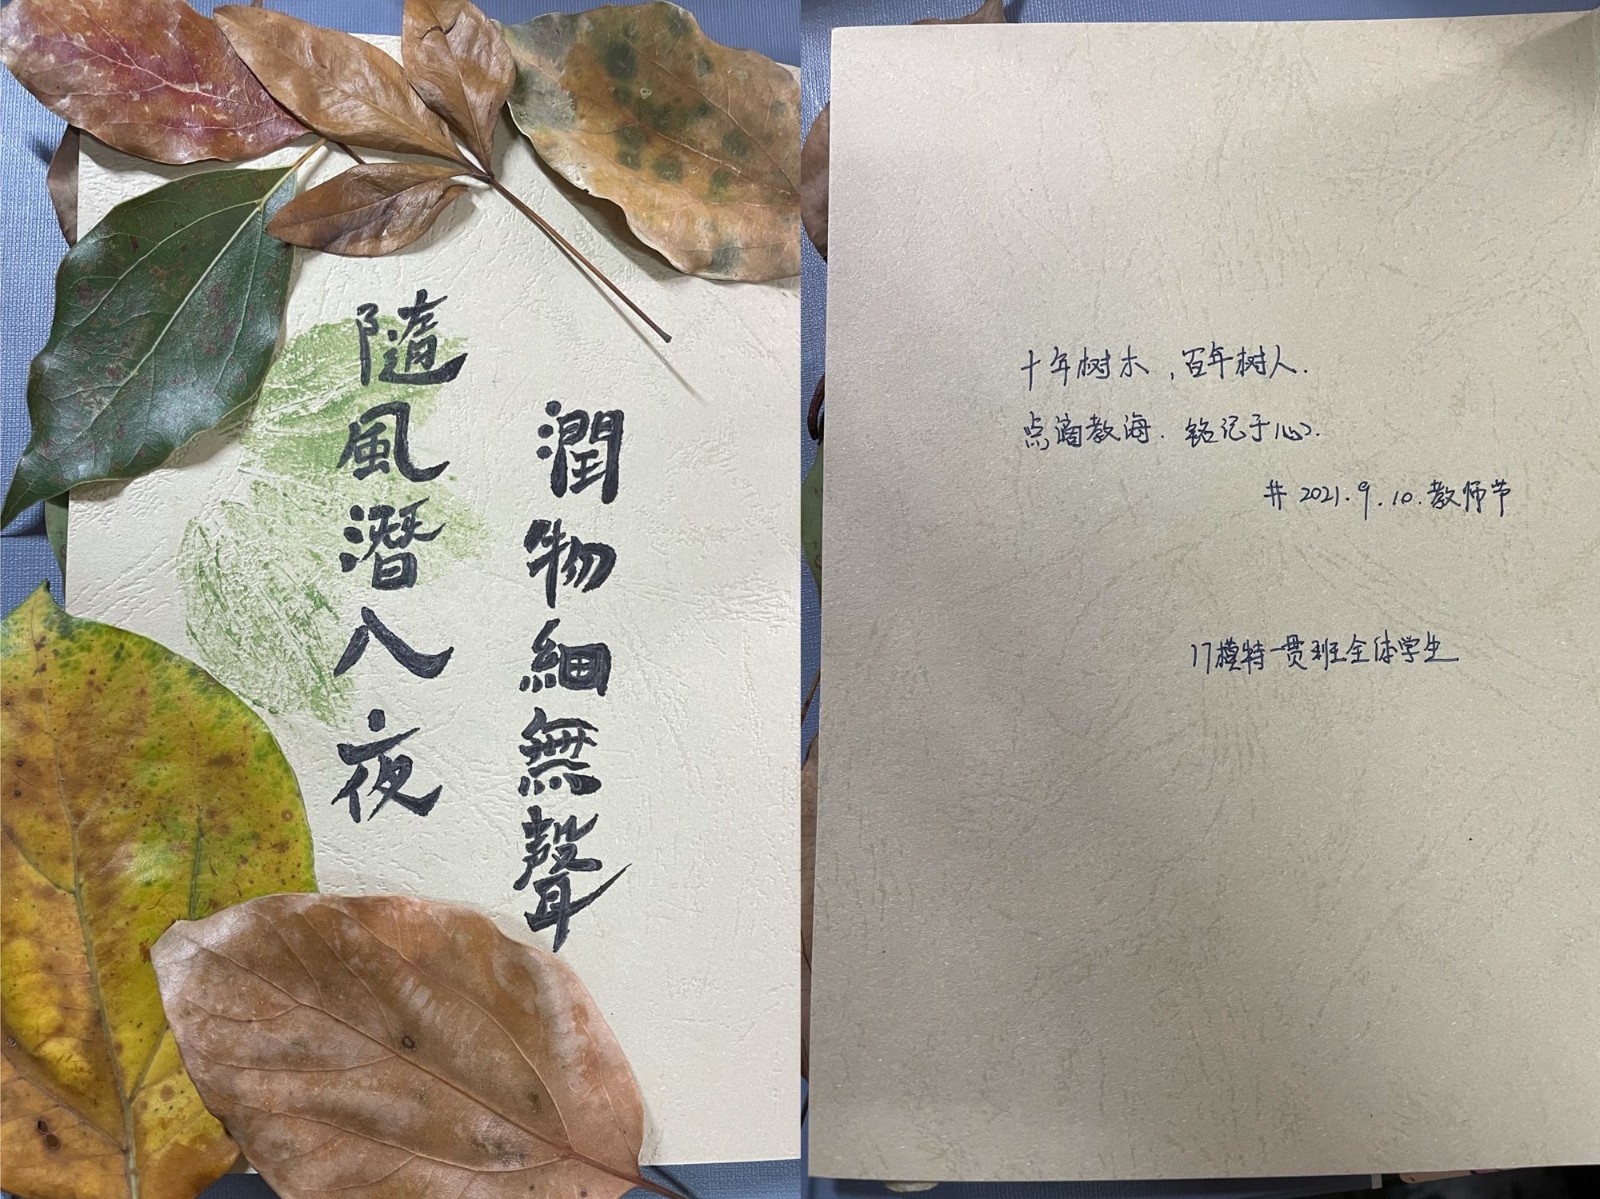 隨風潛入夜
潤物細無聲
十年树木，百年树人.
点滴教诲.铭记于心.
# 2021.9.10.教师节
17模特一贯班全体学生